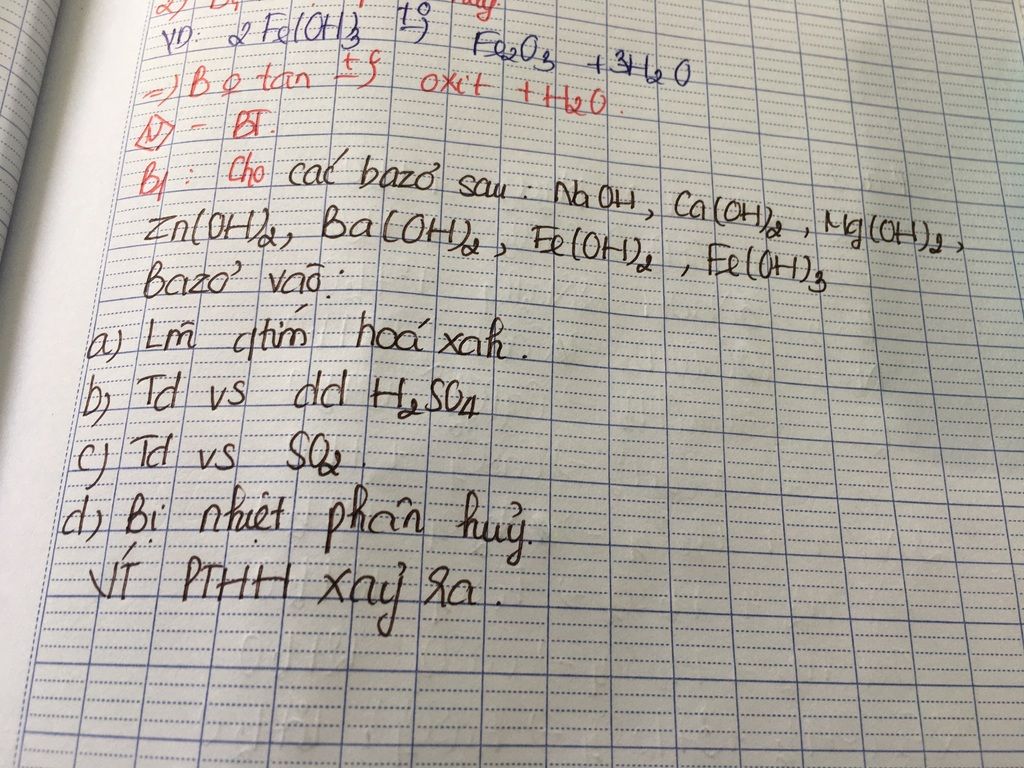 VD: 2Fe(OH)3 t°→ Fe2O3 + 3H2O
=) B o tan t° oxit + H2O.
IV) - BT.
B1: Cho các bazơ sau: NaOH, Ca(OH)2, Mg(OH)2,
Zn(OH)2, Ba(OH)2, Fe(OH)2, Fe(OH)3
Bazơ vào:
a) Lm qtím hoá xah.
b) Td vs dd H2SO4
c) Td vs SO2
d) Bị nhiệt phân huỷ.
VT PTHH xảy ra.